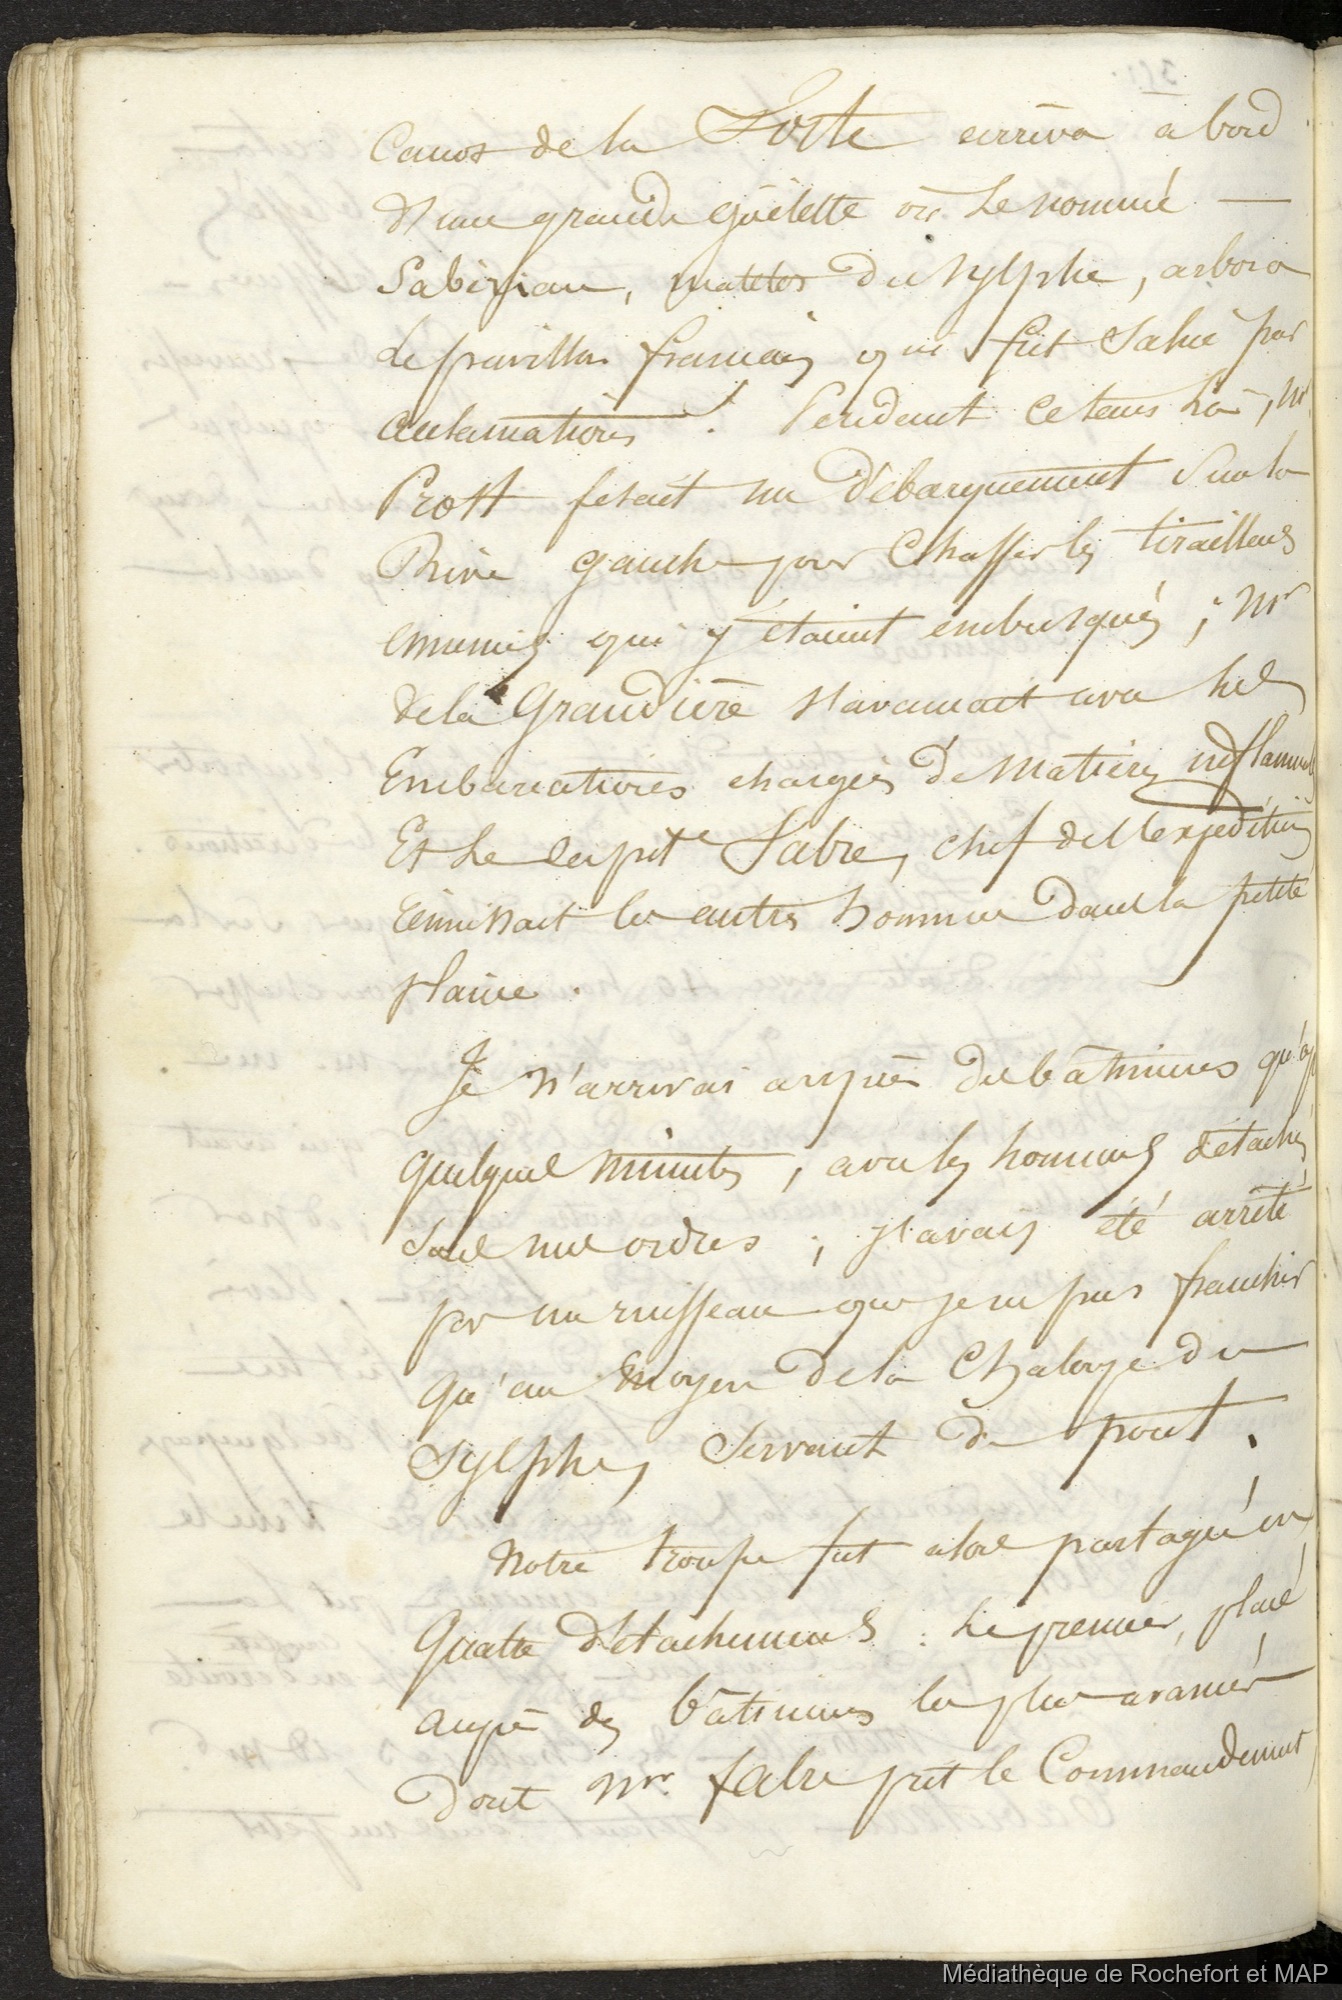 Canot de la Forte arriva a bord
d'une grande göelette où le nommé —
Sabirian, matelot du Sylphe, arbora
le pavillon français qui fut salué par
acclamations. Pendant ce tems là, Mr
Prott fesait un débarquement sur la
Rive gauche pour chasser les tirailleurs
ennemis qui y étaient embusqués ; Mr
de la Grandière s'avancait avec les
Embarcations chargées de matières inflammab
Et le capite Fabre, chef de l'expédition
réunissait les autres hommes dans la petite
plaine.
Je n'arrivai auprès des bâtimens qu'ap
quelques minutes, avec les hommes détachés
sous mes ordres ; j'avais été arrêté
par un ruisseau que je ne pus franchir
qu'au moyen de la Chaloupe du
Sylphe, servant de pont.
Notre troupe fut alors partagée en
quatre détachemens : le premier, placé
auprès des bâtimens les plus avancés
dont Mr. fabre prit le Commandement,
Médiathèque de Rochefort et MAP